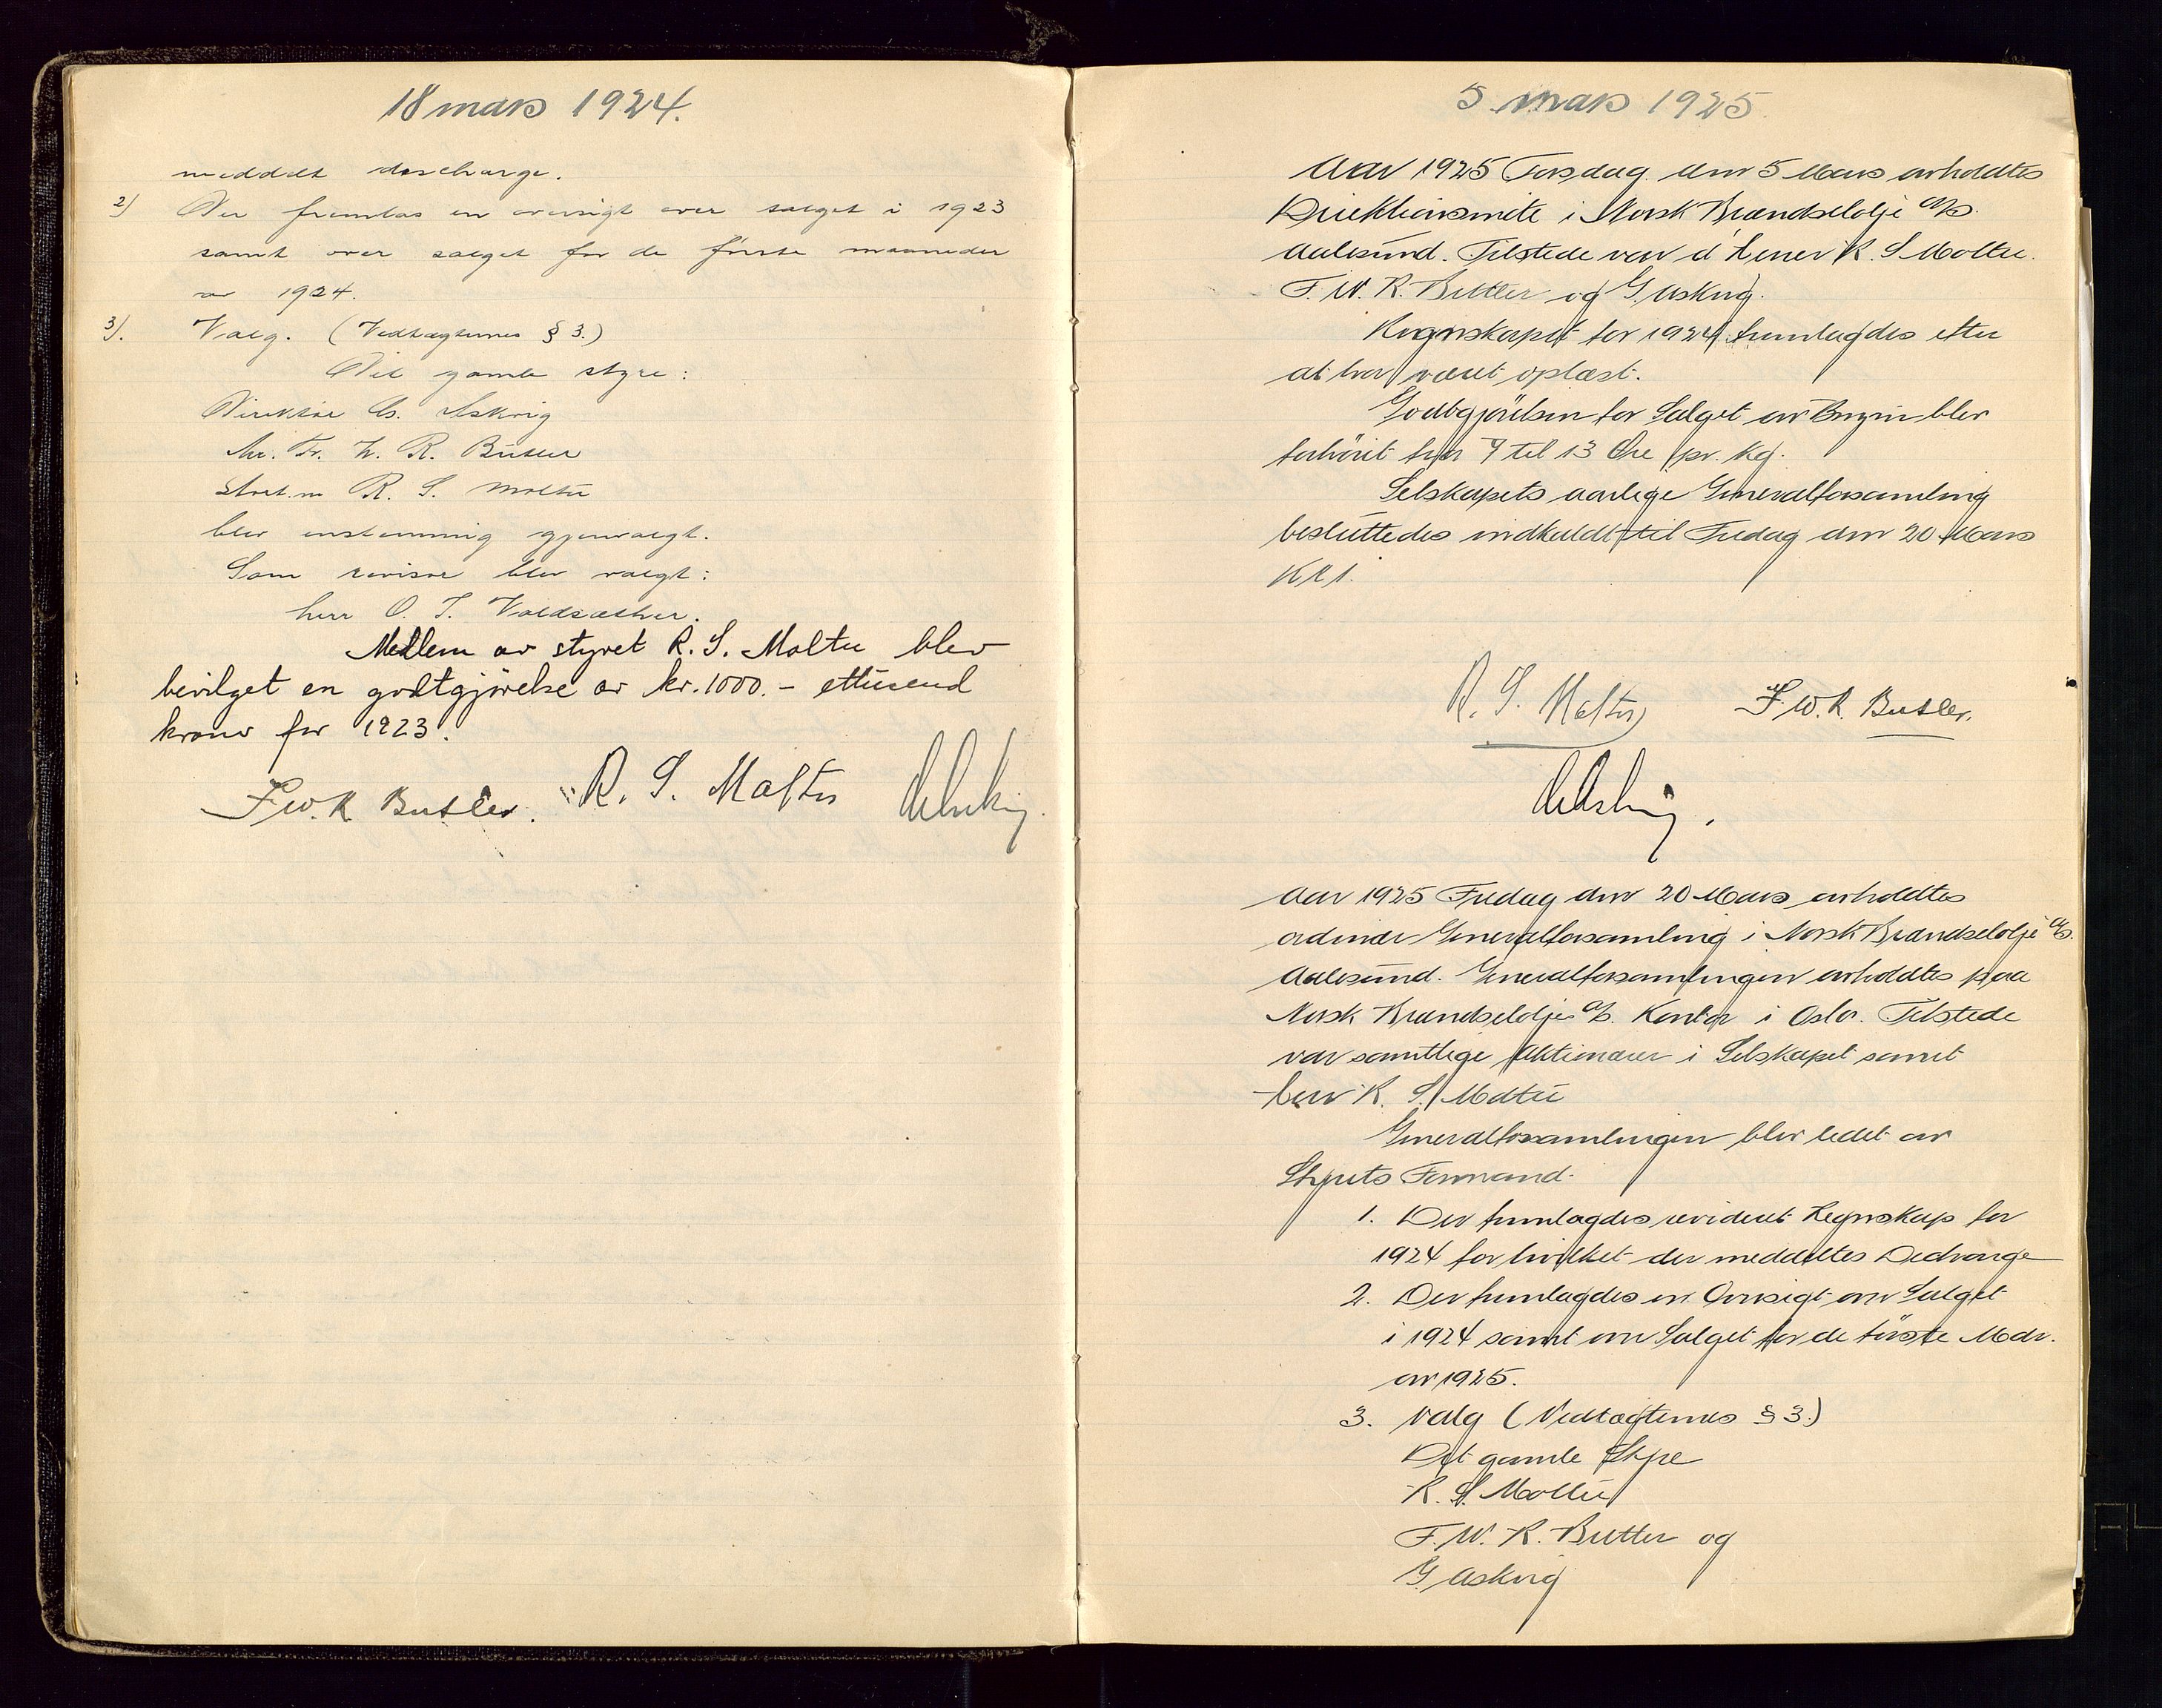 18 mars 1924.
meddelt descharge.
2) Der fremlas en oversigt over salget i 1923
samt over salget for de første maaneder
av 1924.
3). Valg. (Vedtægternes § 3.)
Det gamle styre:
Direktør G. Askvig
Mr. Fr. W. R. Butler
R. S. Moltu
blev enstemmig gjenvalgt.
Som revisor blev valgt:
herr O. T. Voldsæther.
Medlem av styret R. S. Moltu blev
bevilget en godtgjörelse av kr. 1000.- ettusend
kroner for 1923.
F.W.R Butler. R. S. Moltu GAskvig
5 mars 1925.
Aar 1925 Torsdag den 5 Mars avholdtes
Direktionsmöte i Norsk Brændselolje A/S.
Aalesund. Tilstede var d'herrer R. S Moltu.
F. W. R. Butler og G. Askvig.
Regnskapet for 1924 fremlagdes efter
at han været oplæst.
Godtgjörelsen for Salget av Benzin blev
forhöiet fra 9 til 13 Öre pr. kg.
Selskapets aarlige Generalforsamling
besluttedes indkaldt til Fredag den 20 Mars
Kl 1.
R. S. Moltu F.W.R. Butler.
GAskvig.
Aar 1925 Fredag den 20 Mars avholdtes
ordinær Generalforsamling i Norsk Brændselolje A/S.
Aalesund. Generalforsamlingen avholdtes paa
Norsk Brændseloljes A/S. Kontor i Oslo. Tilstede
var samtlige Aktionærer i Selskapet samt
herr R. S. Moltu
Generalforsamlingen blev ledet av
Styrets Formand.
1. Der fremlagdes revideret Regnskap for
1924 for hvilket der meddeltes Decharge
2. Der fremlagdes en Oversigt over Salget
i 1924 samt over Salget for de förste Mdr.
av 1925.
3. Valg (Vedtægternes § 3.)
Det gamle Styre
R. S. Moltu
F. W. R. Butler og
G Askvig